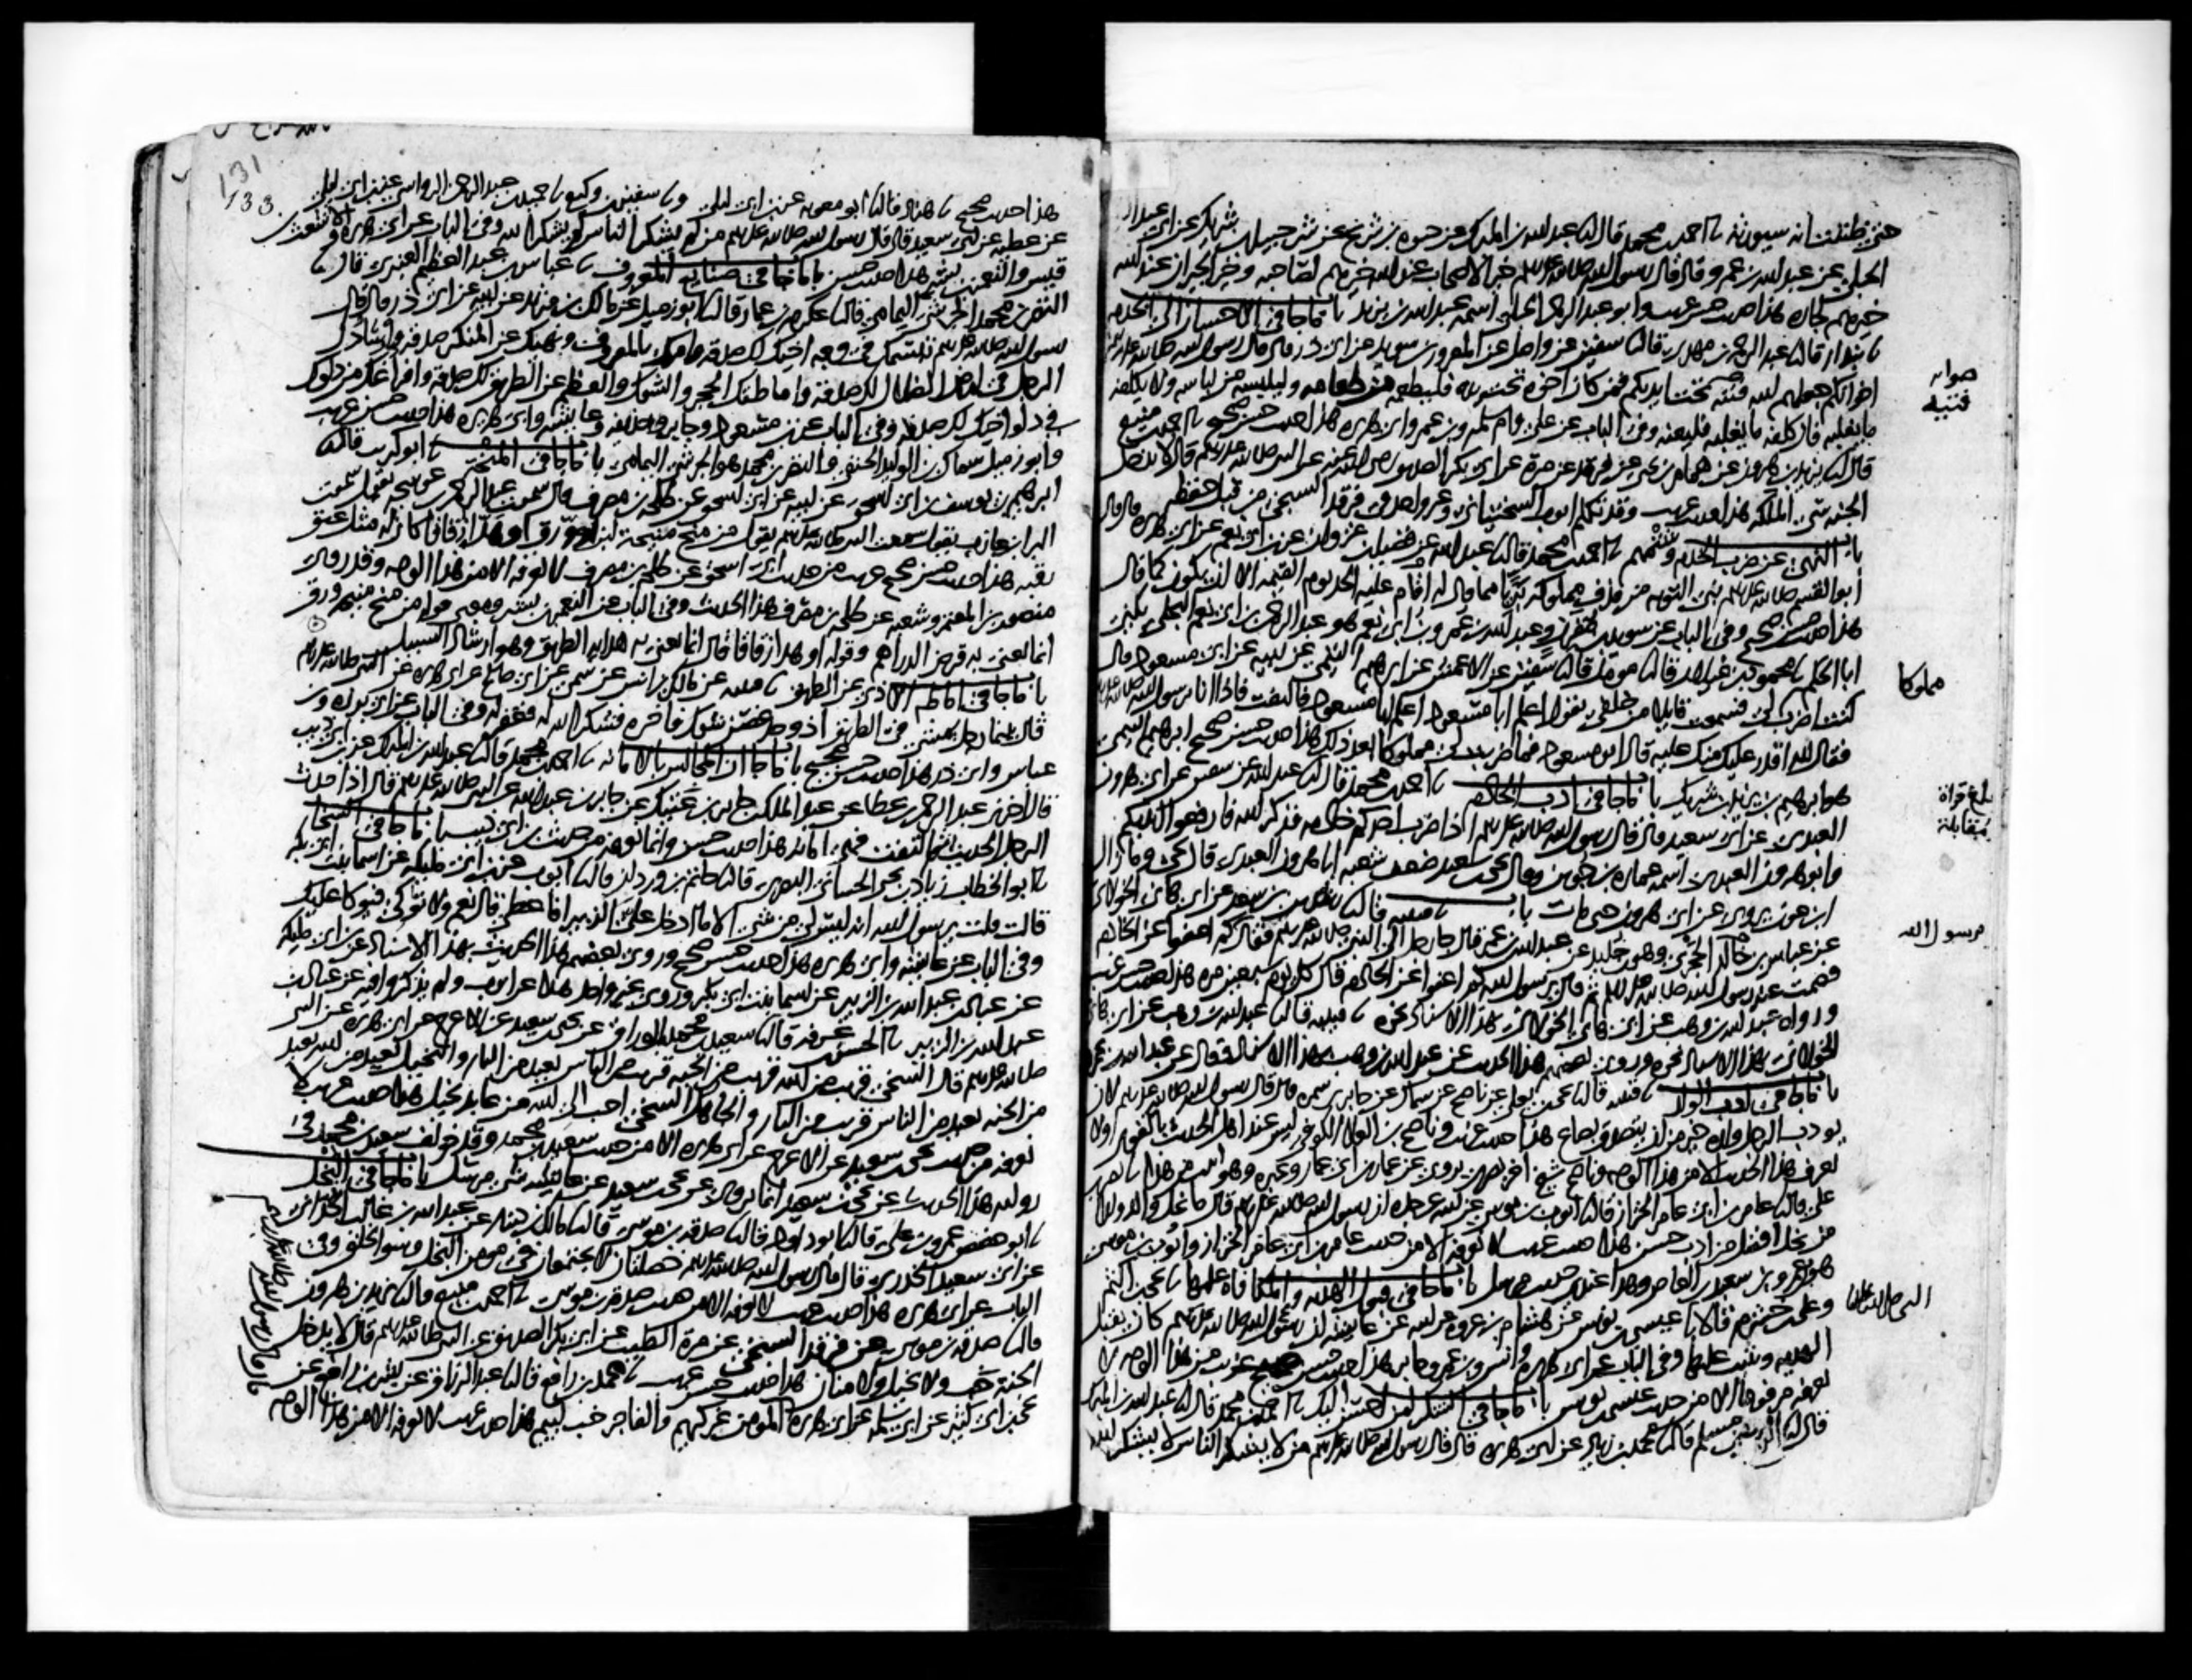 حتى ظننت انه سيورثه احمد بن محمد قال عبد الله بن المبارك عن حيوة بن شريح عن شرحبيل بن شريك عن ابي عبد الرحمن
الحبلي عن عبد الله بن عمرو قال قال رسول الله صلى الله عليه وسلم خير الاصحاب عند الله خيرهم لصاحبه وخير الجيران عند الله
خيرهم لجاره هذا حديث حسن غريب وابو عبد الرحمن الحبلي اسمه عبد الله بن يزيد باب ما جا في الاحسان الى الخدم
بندار قال عبد الرحمن بن مهدي قال سفين عن واصل عن المعرور بن سويد عن ابي ذر قال قال رسول الله صلى الله عليه وسلم
اخوانكم جعلهم الله فتية تحت ايديكم فمن كان اخوه تحت يده فليطعمه من طعامه وليلبسه من لباسه ولا يكلفه
ما يغلبه فان كلفه ما يغلبه فليعنه وفي الباب عن علي وام سلمه وابن عمر وابي هريره هذا حديث حسن صحيح احمد بن منيع
قال يزيد بن هرون عن همام بن يحيى عن فرقد عن مرة عن ابي بكر الصديق رضي الله عنه عن النبي صلى الله عليه وسلم قال لا يدخل
الجنة سيئ الملكه هذا حديث غريب وقد تكلم ايوب السختياني وغير واحد في فرقد السبخي من قبل حفظه
باب النهي عن ضرب الخدم وشتمهم احمد بن محمد قال عبد الله عن فضيل بن غزوان عن ابن ابي نعم عن ابي هريره قال قال
ابو القسم صلى الله عليه وسلم نبي التوبه من قذف مملوكه بريا مما قال له اقام عليه الحد يوم القيمه الا ان يكون كما قال
هذا حديث حسن صحيح وفي الباب عن سويد بن مقرن وعبد الله بن عمر وابن ابي نعم هو عبد الرحمن بن ابي نعم البجلي يكنى
ابا الحكم محمود بن غيلان قال مومل قال سفين عن الاعمش عن ابرهيم التيمي عن ابيه عن ابي مسعود قال
كنت اضرب فسمعت قايلا من خلفي يقول اعلم ابا مسعود اعلم ابا مسعود فالتفت فاذا انا برسول الله صلى الله عليه
فقال لله اقدر عليك منك عليه قال ابو مسعود فما ضربت مملوكا بعد ذلك هذا حديث حسن صحيح ابرهيم التيمي
هو ابرهيم بن يزيد بن شريك باب ما جا في ادب الخادم احمد بن محمد قال عبد الله عن سفين عن ابي هرون
العبدي عن ابي سعيد قال قال رسول الله صلى الله عليه وسلم اذا ضرب احدكم خادمه فذكر الله فارفعوا ايديكم
وابو هرون العبدي اسمه عماره بن جوين وقال يحيى بن سعيد ضعف شعبه ابا هرون العبدي قال يحيى وما زال
ابن عون يروي عن ابي هرون حتى مات باب قتيبه قال رشدين بن سعد عن ابي هاني الخولاني
عن عباس بن خالد الحجري وهو جليد عن عبد الله بن عمر قال جا رجل الى النبي صلى الله عليه وسلم فقال كم اعفوا عن الخادم
فصمت عنه رسول الله صلى الله عليه وسلم ثم قال يرسول الله كم اعفوا عن الخادم قال كل يوم سبعين مره هذا حديث حسن غريب
ورواه عبد الله بن وهب عن ابي هاني الخولاني بهذا الاسناد نحوه قتيبه قال عبد الله بن وهب عن ابي هاني
الخولاني بهذا الاسناد نحوه وروى بعضهم هذا الحديث عن عبد الله بن وهب بهذا الاسناد وقال عن عبد الله بن عمرو
باب ما جا في ادب الولد قتيبه قال يحيى بن يعلى عن ناصح عن سماك عن جابر بن سمره قال قال رسول الله صلى الله عليه وسلم لان
يودب الرجل ولده خير من ان يتصدق بصاع هذا حديث غريب وناصح بن العلا الكوفي ليس عند اهل الحديث بالقوي ولا
يعرف هذا الحديث الا من هذا الوجه وناصح شيخ اخر بصري يروي عن عمار بن ابي عمار وغيره وهو اثبت من هذا نصر بن
علي قال عامر بن ابي عامر الخزاز قال ايوب بن موسى عن ابيه عن جده ان رسول الله صلى الله عليه وسلم قال ما نحل والد ولدا
من نحل افضل من ادب حسن هذا حديث غريب لا نعرفه الا من حديث عامر بن ابي عامر الخزاز وايوب بن موسى
هو ابن عمرو بن سعيد بن العاص وهذا عندي حديث مرسل باب ما جا في قبول الهديه والمكافاه عليها يحيى بن اكثم
وعلي بن خشرم قالا عيسى بن يونس عن هشام بن عروه عن ابيه عن عايشه ان رسول الله صلى الله عليه وسلم كان يقبل
الهديه ويثيب عليها وفي الباب عن ابي هريره وانس وابن عمر وجابر هذا حديث حسن صحيح غريب من هذا الوجه لا
نعرفه مرفوعا الا من حديث عيسى بن يونس باب ما جا في الشكر لمن احسن اليك احمد بن محمد قال عبد الله بن المبارك
قال الربيع بن مسلم قال محمد بن زياد عن ابي هريره قال قال رسول الله صلى الله عليه وسلم من لا يشكر الناس لا يشكر الله
صوابه
فتية
مملوكا
بلغ قراة
بمقابلة
يرسول الله
النبي صلى الله عليه
131
133
هذا حديث صحيح هناد قال ابو معويه عن ابن ابي ليلى وسفين بن وكيع حميد بن عبد الرحمن الرواسي عن ابن ابي ليلى
عن عطيه عن ابي سعيد قال قال رسول الله صلى الله عليه وسلم من لم يشكر الناس لم يشكر الله وفي الباب عن ابي هريره والاشعث بن
قيس والنعمن بن بشير هذا حديث حسن باب ما جا في صنايع المعروف عباس بن عبد العظيم العنبري قال
النضر بن محمد الجرشي اليمامي قال عكرمه بن عمار قال ابو زميل عن مالك بن مرثد عن ابيه عن ابي ذر قال قال
رسول الله صلى الله عليه وسلم تبسمك في وجه اخيك لك صدقه وامرك بالمعروف ونهيك عن المنكر صدقه وارشادك
الرجل في ارض الضلال لك صدقه واماطتك الحجر والشوك والعظم عن الطريق لك صدقه وافراغك من دلوك
في دلو اخيك لك صدقه وفي الباب عن ابن مسعود وجابر وحذيفه وعايشه وابي هريره هذا حديث حسن غريب
وابو زميل سماك بن الوليد الحنفي والنضر بن محمد هو الجرشي اليمامي باب ما جا في المنحة ابو كريب قال
ابرهيم بن يوسف بن ابي اسحق عن ابيه عن ابي اسحق عن طلحه بن مصرف قال سمعت عبد الرحمن بن عوسجه يقول سمعت
البرا بن عازب يقول سمعت النبي صلى الله عليه وسلم يقول من منح منيحة لبن او ورق او هدا زقاقا كان له مثل عتق
رقبه هذا حديث حسن صحيح غريب من حديث ابي اسحق عن طلحه بن مصرف لا نعرفه الا من هذا الوجه وقد روى
منصور بن المعتمر وشعبه عن طلحه بن مصرف هذا الحديث وفي الباب عن النعمن بن بشير ومعنى قوله من منح منيحة ورق
انما يعني به قرض الدراهم وقوله او هدا زقاقا قال انما يعني به هدايه الطريق وهو ارشاد السبيل
باب ما جا في اماطه الاذى عن الطريق قتيبه عن مالك بن انس عن سمي عن ابي صالح عن ابي هريره عن النبي صلى الله عليه وسلم
قال بينما رجل يمشي في الطريق اذ وجد غصن شوك فاخره فشكر الله له فغفر له وفي الباب عن ابي برزه وابن
عباس وابي ذر هذا حديث حسن صحيح باب ما جا ان المجالس بالامانه احمد بن محمد قال عبد الله بن المبارك عن ابن ابي ذيب
قال اخبرني عبد الرحمن بن عطا عن عبد الملك بن جابر بن عتيك عن جابر بن عبد الله عن النبي صلى الله عليه وسلم قال اذا حدث
الرجل الحديث ثم التفت فهي امانه هذا حديث حسن وانما نعرفه من حديث ابن ابي ذيب باب ما جا في السخا
ابو الخطاب زياد بن يحيى الحساني البصري قال حاتم بن وردان قال ايوب عن ابن ابي مليكه عن اسما بنت ابي بكر
قالت قلت يرسول الله انه ليس لي من شي الا ما ادخل علي الزبير افاعطي قال نعم ولا توكي فيوكا عليك
وفي الباب عن عايشه وابي هريره هذا حديث حسن صحيح وروى بعضهم هذا الحديث بهذا الاسناد عن ابن ابي مليكه
عن عباد بن عبد الله بن الزبير عن اسما بنت ابي بكر وروى غير واحد هذا عن ايوب ولم يذكروا فيه عن عباد بن
عبد الله بن الزبير الحسن بن عرفه قال سعيد بن محمد الوراق عن يحيى بن سعيد عن الاعرج عن ابي هريره عن النبي
صلى الله عليه وسلم قال السخي قريب من الله قريب من الجنة قريب من الناس بعيد من النار والبخيل بعيد من الله بعيد
من الجنه بعيد من الناس قريب من النار والجاهل السخي احب الى الله من عابد بخيل هذا حديث غريب لا
نعرفه من حديث يحيى بن سعيد عن الاعرج عن ابي هريره الا من حديث سعيد بن محمد وقد خولف سعيد بن محمد في
روايه هذا الحديث عن يحيى بن سعيد انما يروى عن يحيى بن سعيد عن عايشه شي مرسل باب ما جا في البخل
ابو حفص عمرو بن علي قال ابو داود قال صدقه بن موسى قال مالك بن دينار عن عبد الله بن غالب الحداني
عن ابي سعيد الخدري قال قال رسول الله صلى الله عليه وسلم خصلتان لا تجتمعان في مومن البخل وسو الخلق وفي
الباب عن ابي هريره هذا حديث غريب لا نعرفه الا من حديث صدقه بن موسى احمد بن منيع قال يزيد بن هرون
قال صدقه بن موسى عن فرقد السبخي عن مرة الطيب عن ابي بكر الصديق عن النبي صلى الله عليه وسلم قال لا يدخل
الجنة خب ولا بخيل ولا منان هذا حديث حسن غريب محمد بن رافع قال عبد الرزاق عن بشر بن رافع عن
يحيى بن ابي كثير عن ابي سلمه عن ابي هريره المومن غر كريم والفاجر خب لييم هذا حديث غريب لا نعرفه الا من هذا الوجه
قال قال رسول الله صلى الله عليه وسلم